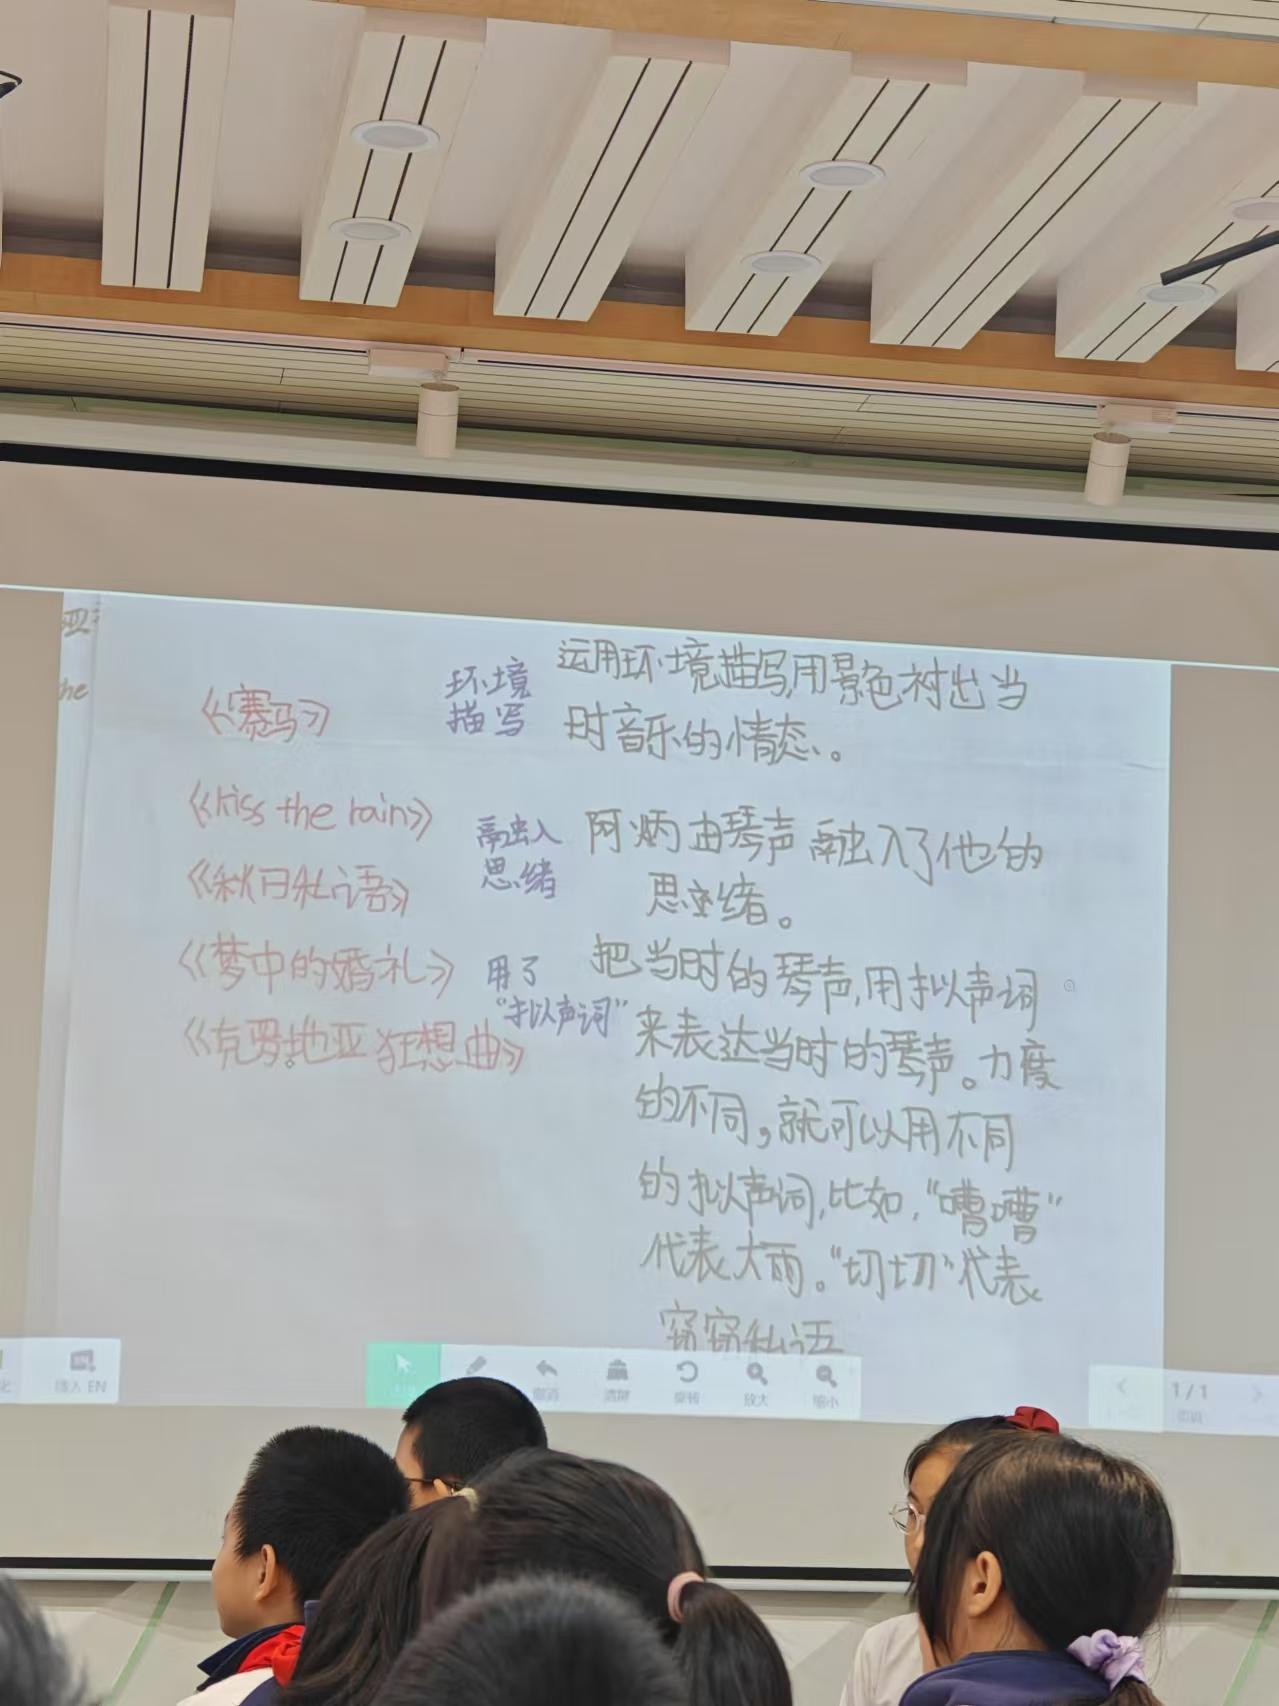 亚
he
《赛马》
《kiss the rain》
《秋日私语》
《梦中的婚礼》
《克罗地亚狂想曲》
环境
描写
运用环境描写,用景色衬出当
时音乐的情态。
融入
思绪
阿炳由琴声融入了他的
思绪。
用了
“拟声词”
把当时的琴声,用拟声词
来表达当时的琴声。力度
的不同,就可以用不同
的拟声词,比如,“嘈嘈”
代表大雨。“切切”代表
窃窃私语
化
插入 EN
撤消
清屏
旋转
放大
缩小
1 / 1